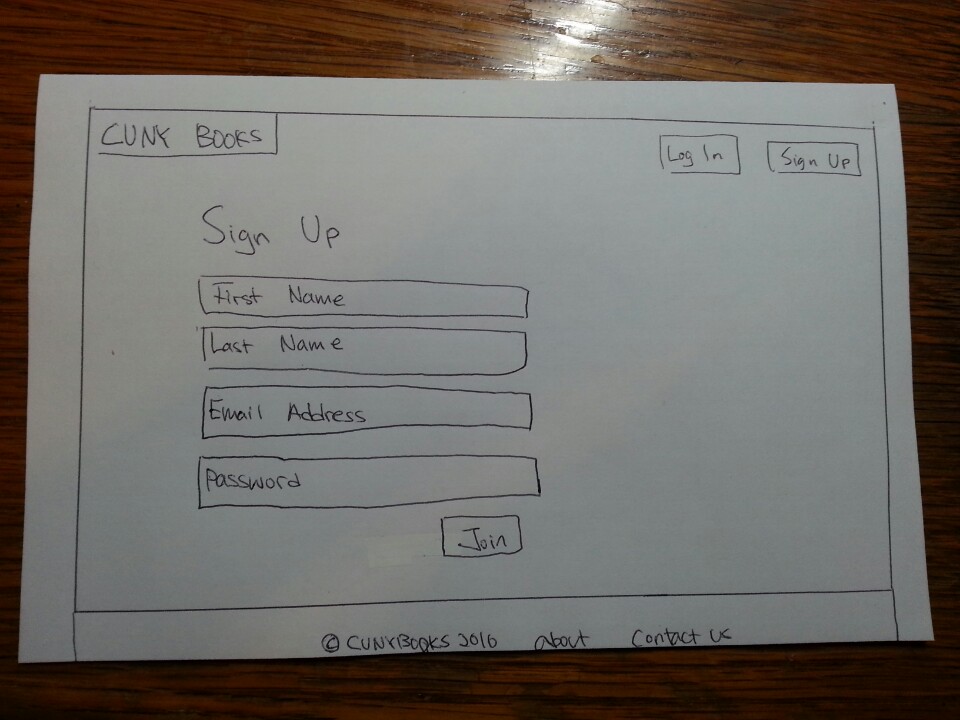 CUNY BOOKS
Log In
Sign Up
Sign Up
First Name
Last Name
Email Address
Password
Join
© CUNYBOOKS 2016 about Contact Us